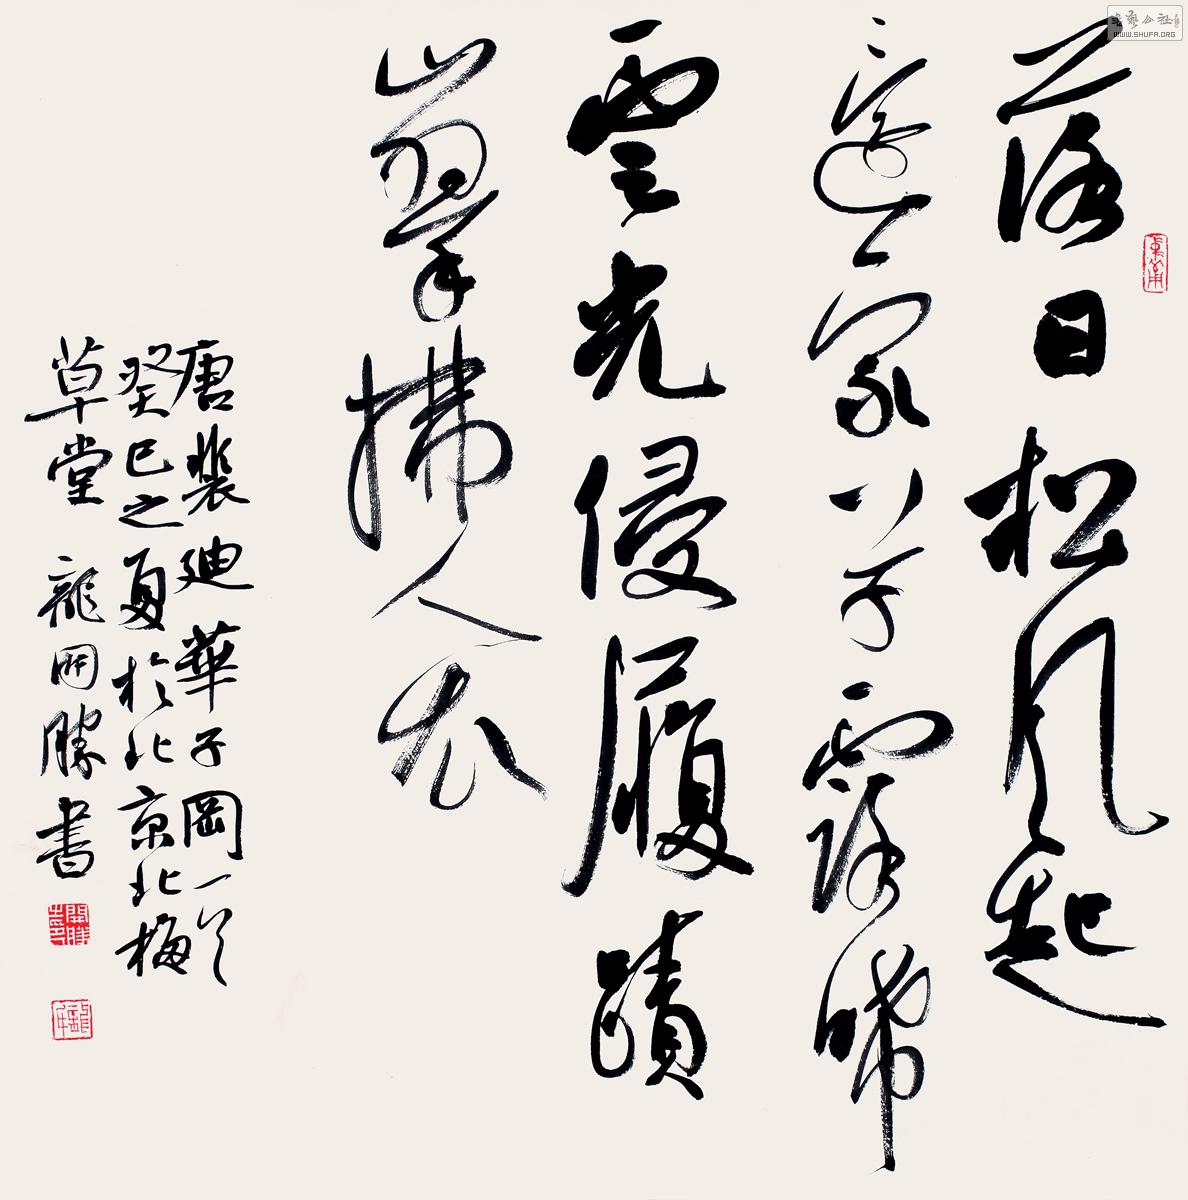 落日松風起
還家草露晞
雲光侵履蹟
山翠拂人衣
唐裴迪華子岡一首
癸巳之夏於北京北梅
草堂 龍開勝書
WWW.SHUFA.ORG